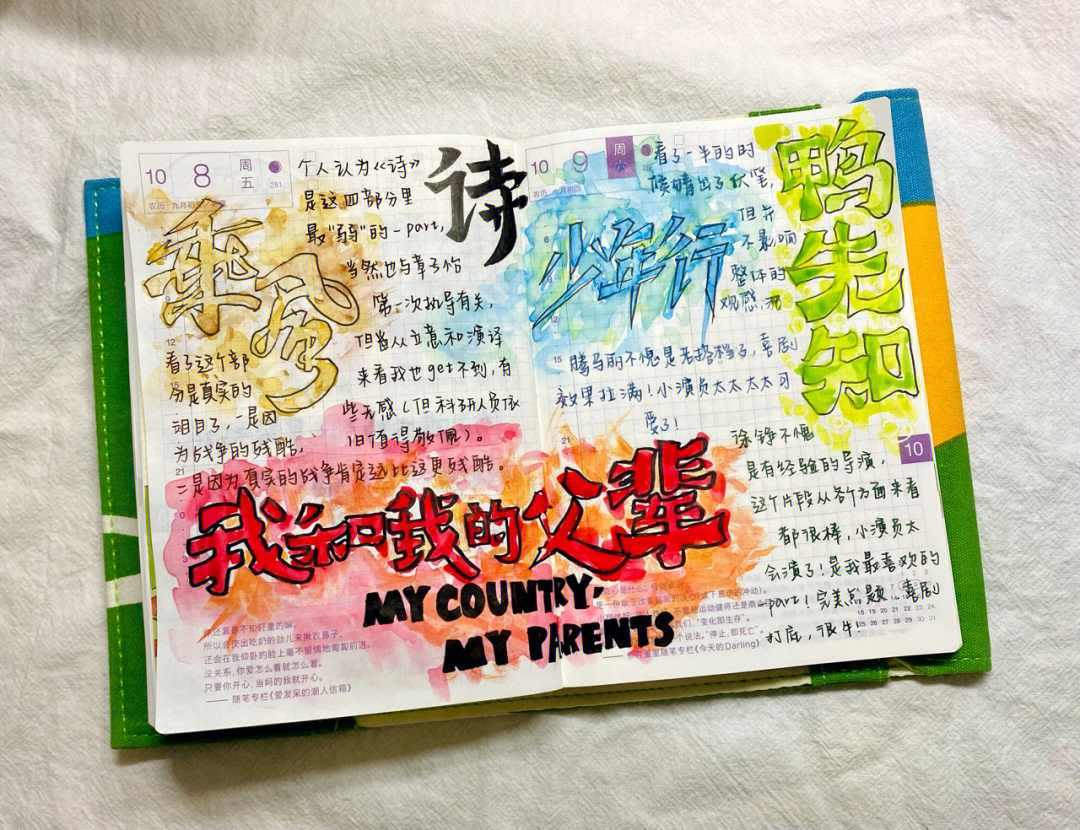 10 8 周五
281
农历 九月初三
乘风
看了这个部
分是真实的
泪目了，一是因
为战争的残酷，
二是因为真实的战争肯定远比这更残酷。
诗
个人认为《诗》
是这四部分里
最"弱"的一part，
当然也与章子怡
第一次执导有关，
但当从立意和演译
来看我也get不到，有
些无感（但科研人员依
旧值得敬佩）。
10 9 周六
农历 九月初四
少年行
看了一半的时
候猜出了伏笔，
但并
不影响
整体的
观感，沈
腾马丽不愧是老搭档了，喜剧
效果拉满！小演员太太太太可
爱了！
鸭先知
徐铮不愧
是有经验的导演，
这个片段从各个方面来看
都很棒，小演员太
会演了！是我最喜欢的
part！完美点题，喜剧
打底，很牛！
10
我和我的父辈
MY COUNTRY,
MY PARENTS
你还真是不知轻重的嘛。
所以会使出吃奶的劲儿来揪我鼻子。
还会在我仰卧的脸上毫不留情地匍匐前进。
没关系，你爱怎么着就怎么着。
只要你开心，当妈的我就开心。
——随笔专栏《爱发呆的潮人信箱》
"变化即生存"。
个说法。"停止，即死亡"
随笔专栏《今天的Darling》
18 19 20 21 22 23 24
25 26 27 28 29 30 31